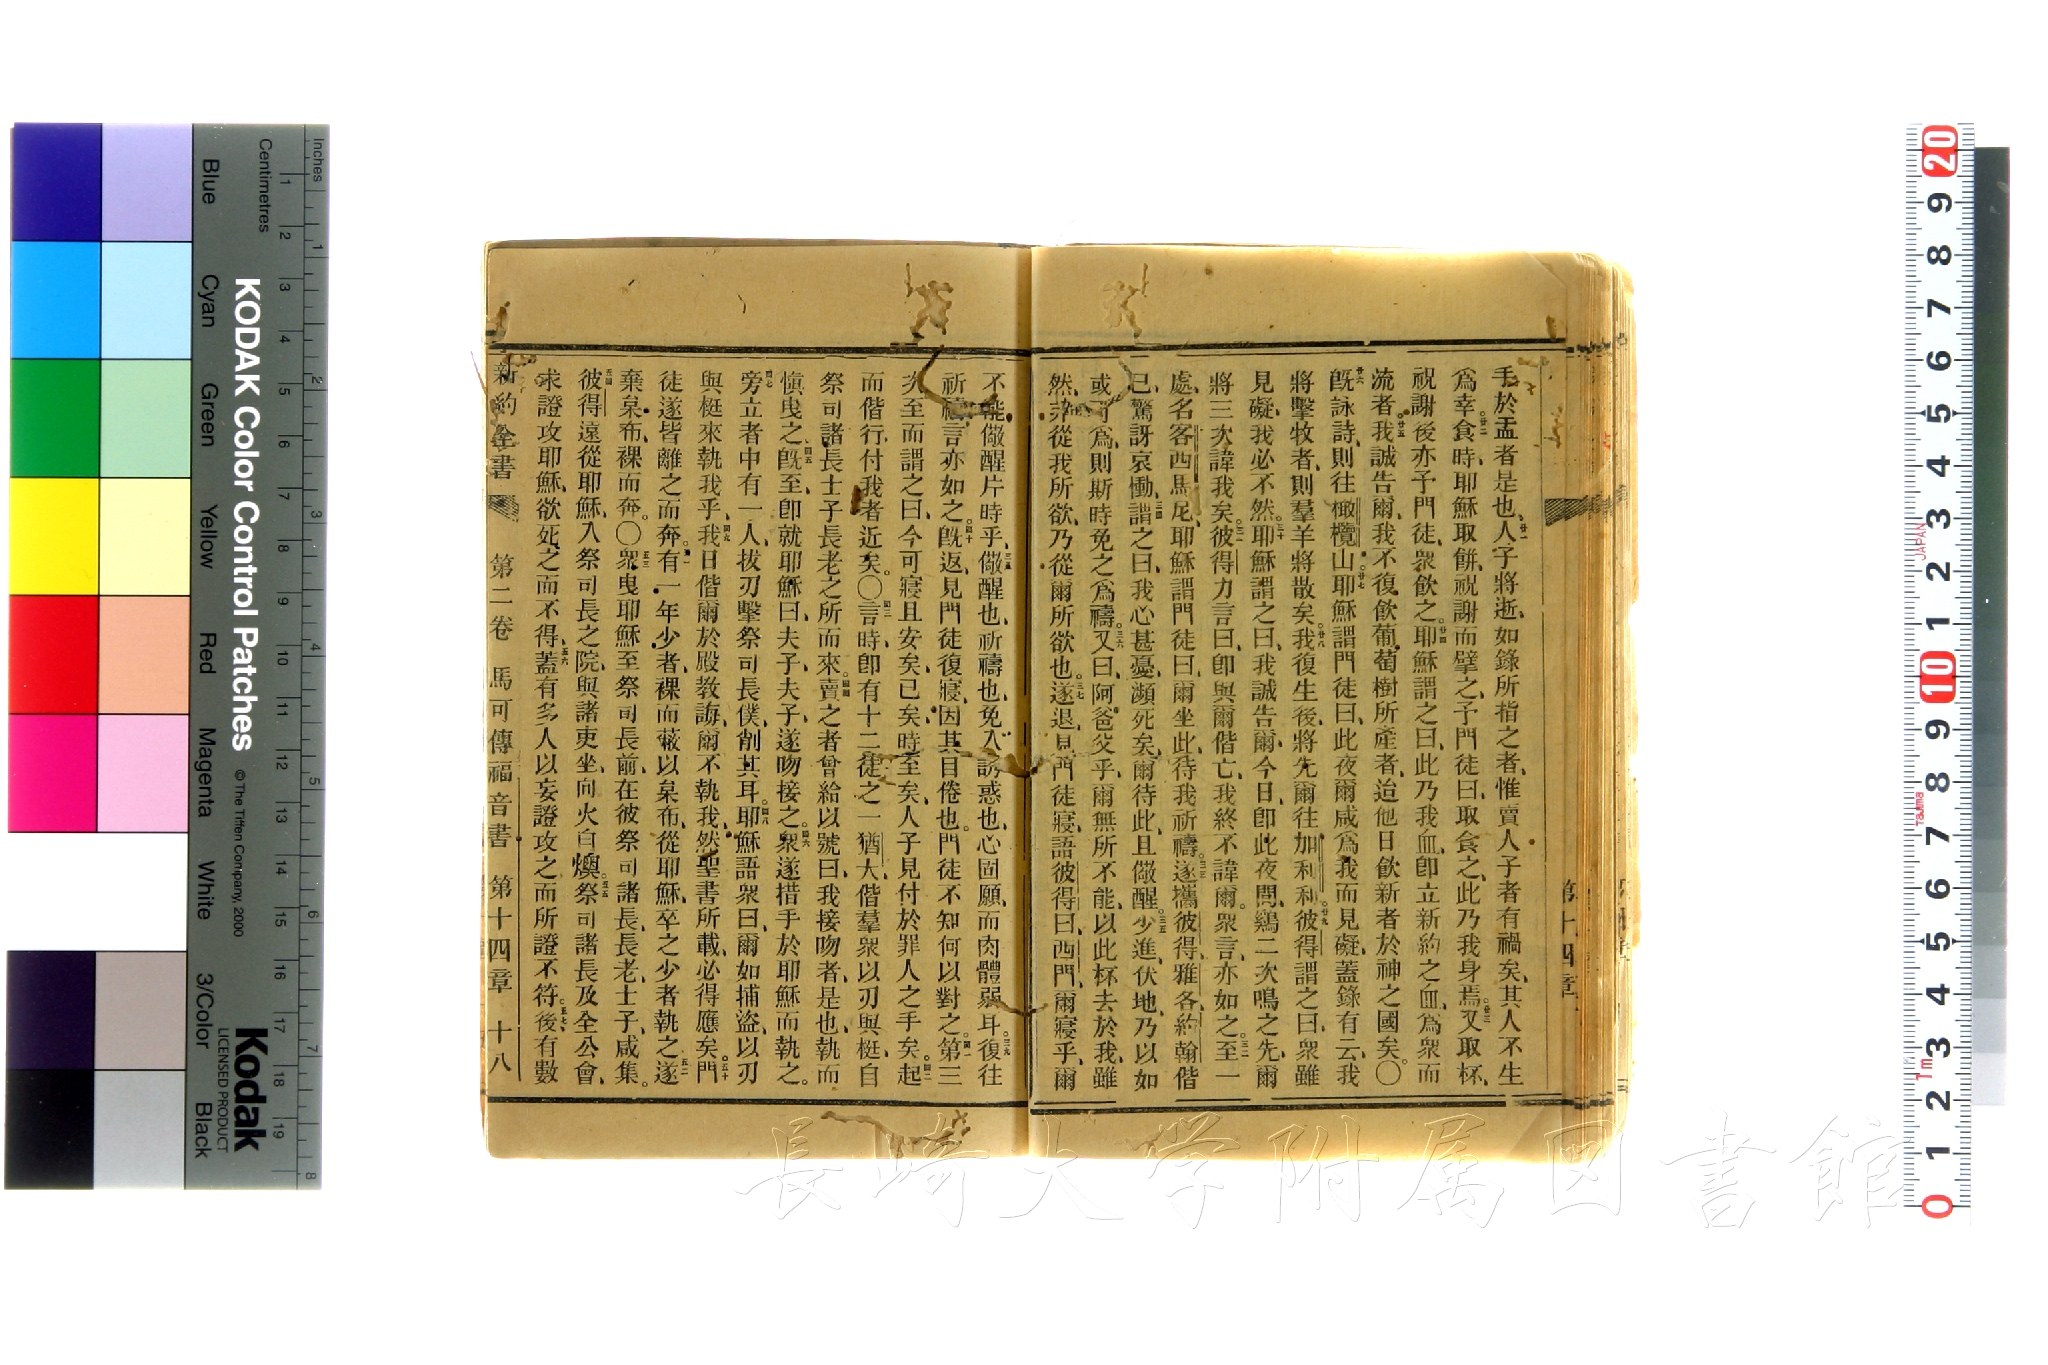 手於盂者是也、廿一人子將逝、如錄所指之者、惟賣人子者有禍矣、其人不生
爲幸、廿二食時、耶穌取餅、祝謝而擘之、予門徒曰、取食之、此乃我身焉、廿三又取杯、
祝謝後、亦予門徒、衆飲之、廿四耶穌謂之曰、此乃我血、卽立新約之血、爲衆而
流者、廿五我誠告爾、我不復飲葡萄樹所產者、迨他日飲新者於神之國矣。〇
廿六旣詠詩、則往橄欖山、廿七耶穌謂門徒曰、此夜爾咸爲我而見礙、蓋錄有云、我
將擊牧者、則羣羊將散矣、廿八我復生後、將先爾往加利利、廿九彼得謂之曰、衆雖
見礙、我必不然、三十耶穌謂之曰、我誠告爾、今日卽此夜間、鷄二次鳴之先、爾
將三次諱我矣、三一彼得力言曰、卽與爾偕亡、我終不諱爾。衆言亦如之。三二至一
處、名客西馬尼、耶穌謂門徒曰、爾坐此、待我祈禱、三三遂攜彼得雅各約翰偕
已、驚訝哀慟、三四謂之曰、我心甚憂、瀕死矣、爾待此、且儆醒、三五少進、伏地、乃以如
或可爲、則斯時免之爲禱、三六又曰、阿爸父乎、爾無所不能、以此杯去於我、雖
然、非從我所欲、乃從爾所欲也。三七遂退、見門徒寢、語彼得曰、西門、爾寢乎、爾
不能儆醒片時乎、三八儆醒也、祈禱也、免入誘惑也、心固願而肉體弱耳。三九復往
祈禱、言亦如之、四十旣返、見門徒復寢、因其目倦也。門徒不知何以對之。四一第三
次至而謂之曰、今可寢且安矣、已矣、時至矣、人子見付於罪人之手矣。四二起
而偕行、付我者近矣。〇四三言時、卽有十二徒之一猶大、偕羣衆以刃與梃、自
祭司諸長士子長老之所而來。四四賣之者曾給以號曰、我接吻者是也、執而
愼曳之、四五旣至、卽就耶穌曰、夫子、夫子、遂吻接之。四六衆遂措手於耶穌而執之。
四七旁立者中有一人、拔刃擊祭司長僕、削其耳。四八耶穌語衆曰、爾如捕盜、以刃
與梃來執我乎、四九我日偕爾於殿敎誨、爾不執我、然聖書所載、必得應矣。五十門
徒遂皆離之而奔。五一有一年少者、裸而蔽以枲布、從耶穌、卒之少者執之、五二遂
棄枲布、裸而奔。〇五三衆曳耶穌至祭司長前、在彼祭司諸長、長老、士子、咸集。
五四彼得遠從耶穌、入祭司長之院、與諸吏坐、向火自燠。五五祭司諸長及全公會、
求證攻耶穌、欲死之而不得、五六蓋有多人以妄證攻之、而所證不符。五七後有數
新約全書 第二卷 馬可傳福音書 第十四章 十八
第十四章
長崎大学附属図書館
KODAK Color Control Patches
© The Tiffen Company, 2000
Kodak
LICENSED PRODUCT
Inches
Centimetres
Blue Cyan Green Yellow Red Magenta White 3/Color Black
1 2 3 4 5 6 7 8 9 10 11 12 13 14 15 16 17 18 19
1 2 3 4 5 6 7 8
20 9 8 7 6 5 4 3 2 1 10 9 8 7 6 5 4 3 2 1 0
JAPAN
Tajima
1m